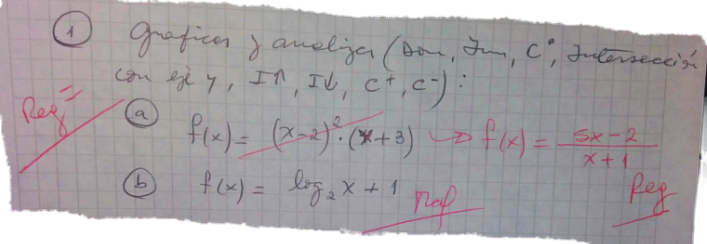 ① Graficar y analizar (Dom, Im, C°, Intersección
con eje y, I↑, I↓, C⁺, C⁻):
Reg =
ⓐ f(x) = (x-2)²·(x+3) → f(x) = \frac{5x-2}{x+1}
Reg
ⓑ f(x) = log₂ x + 1